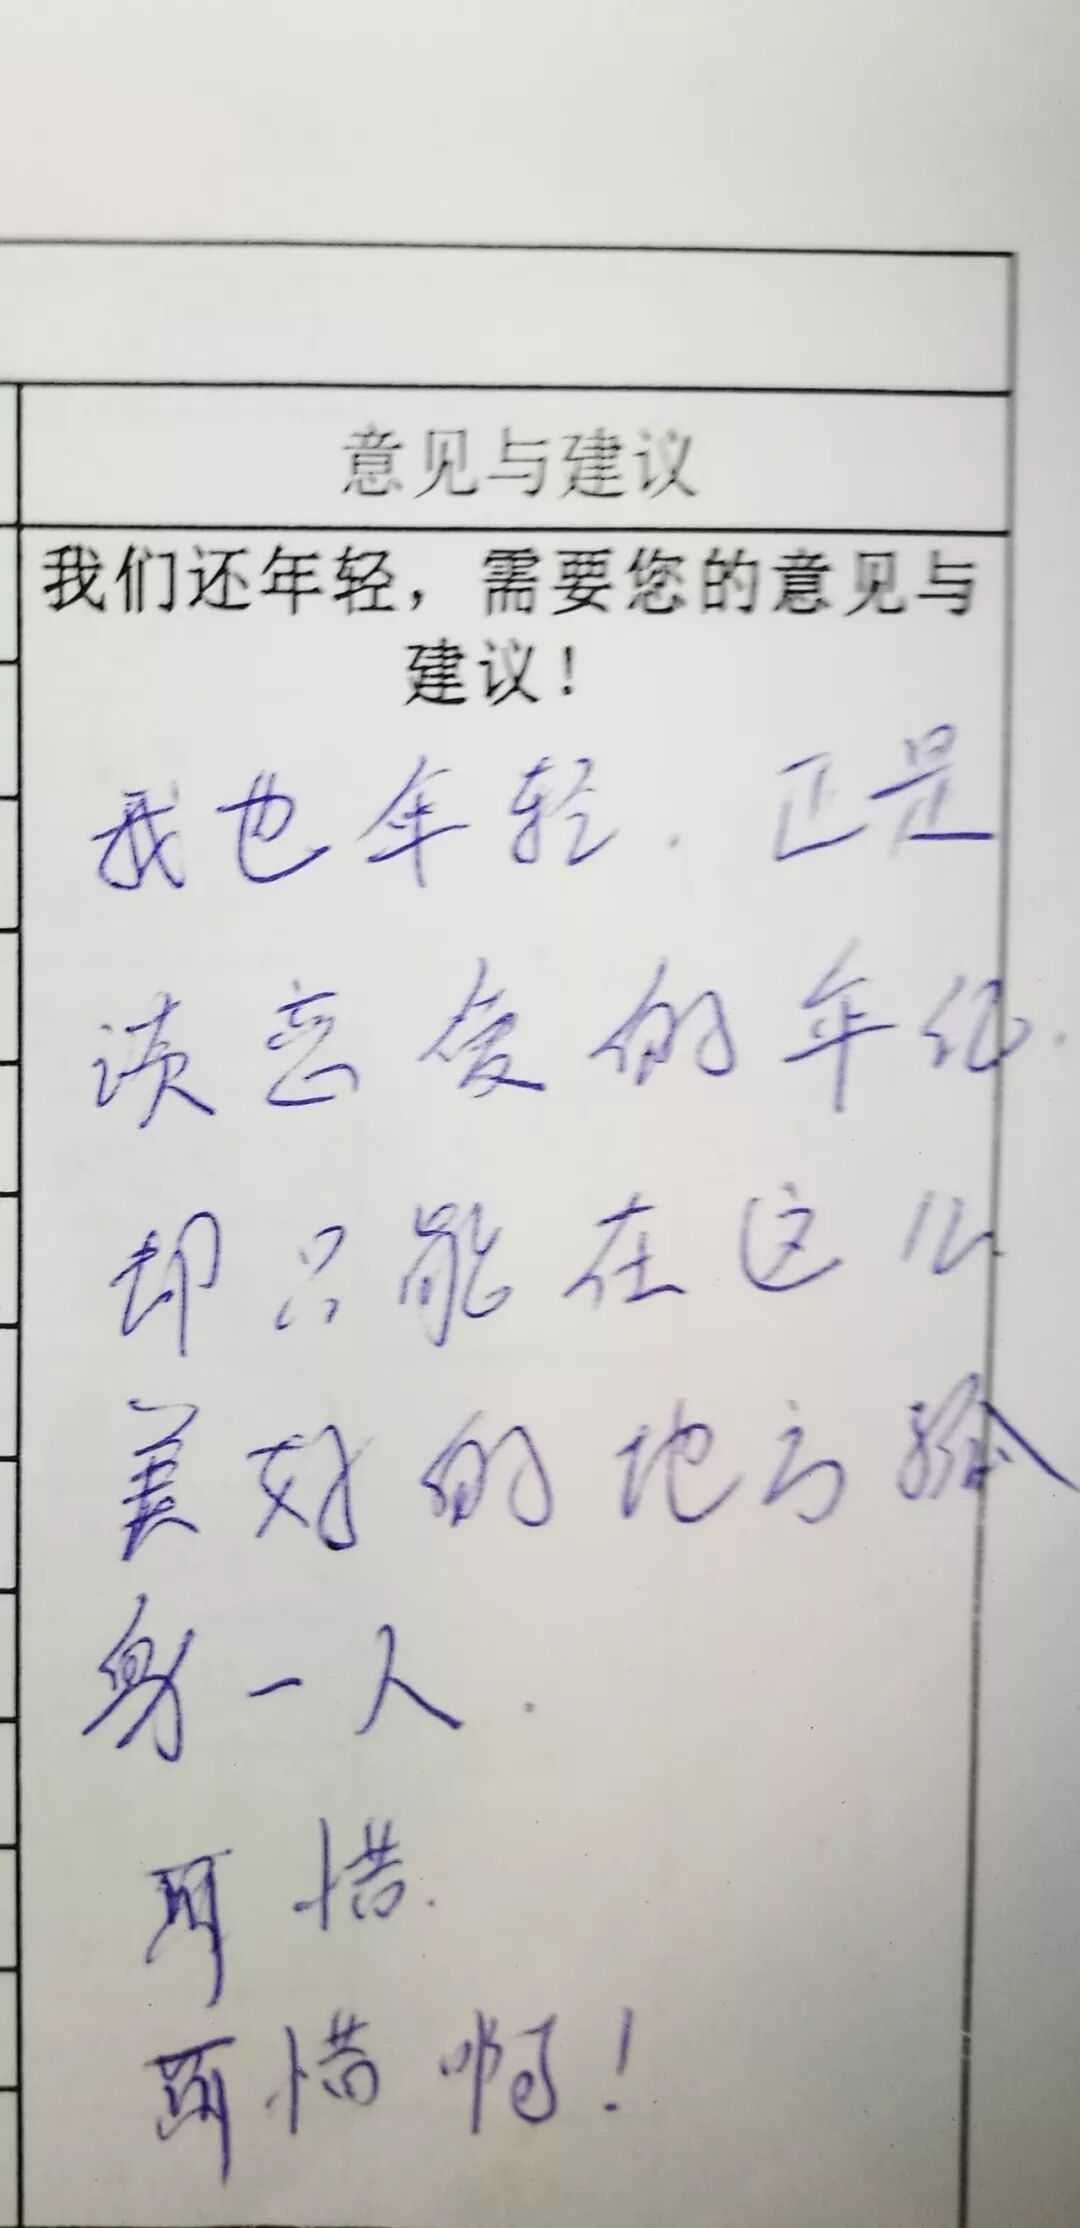 意见与建议
我们还年轻，需要您的意见与
建议！
我也年轻．正是
谈恋爱的年纪．
却只能在这么
美好的地方孤
身一人．
可惜．
可惜啊！